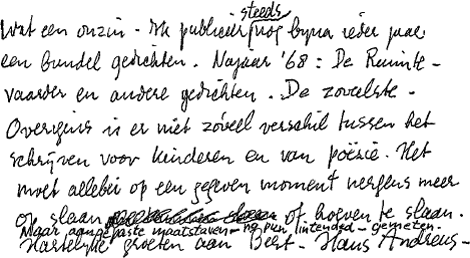 Wat een onzin - Ik publiceer steeds nog bijna ieder jaar
een bundel gedichten. Najaar '68: De Ruimte-
vaarder en andere gedichten. De zoveelste.
Overigens is er niet zóveel verschil tussen het
schrijven voor kinderen en van poësie. Het
moet allebei op een gegeven moment nergens meer
op slaan of hoeven te slaan.
Maar aangepaste maatstaven - no pun intended - gemeten.
Hartelijke groeten aan Bert - Hans Andreus -